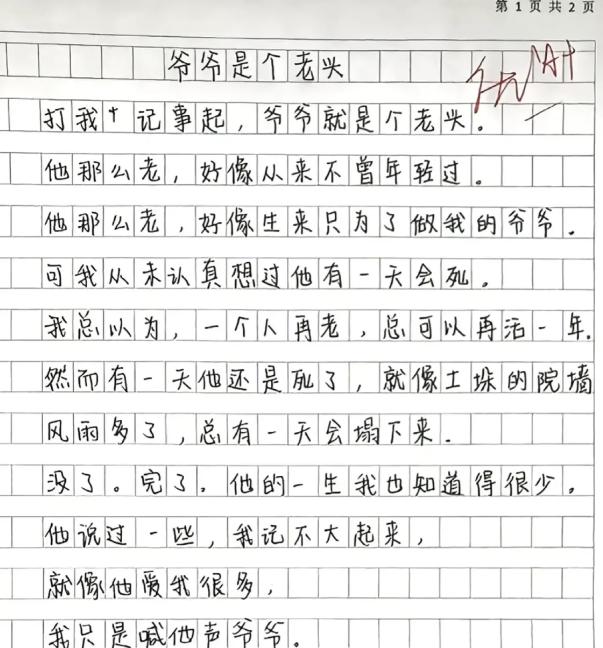 第 1 页 共 2 页
爷爷是个老头
打我十记事起，爷爷就是个老头。
他那么老，好像从来不曾年轻过。
他那么老，好像生来只为了做我的爷爷。
可我从未认真想过他有一天会死。
我总以为，一个人再老，总可以再活一年.
然而有一天他还是死了，就像土垛的院墙
风雨多了，总有一天会塌下来.
没了。完了. 他的一生我也知道得很少。
他说过一些，我记不大起来，
就像他爱我很多，
我只是喊他声爷爷。